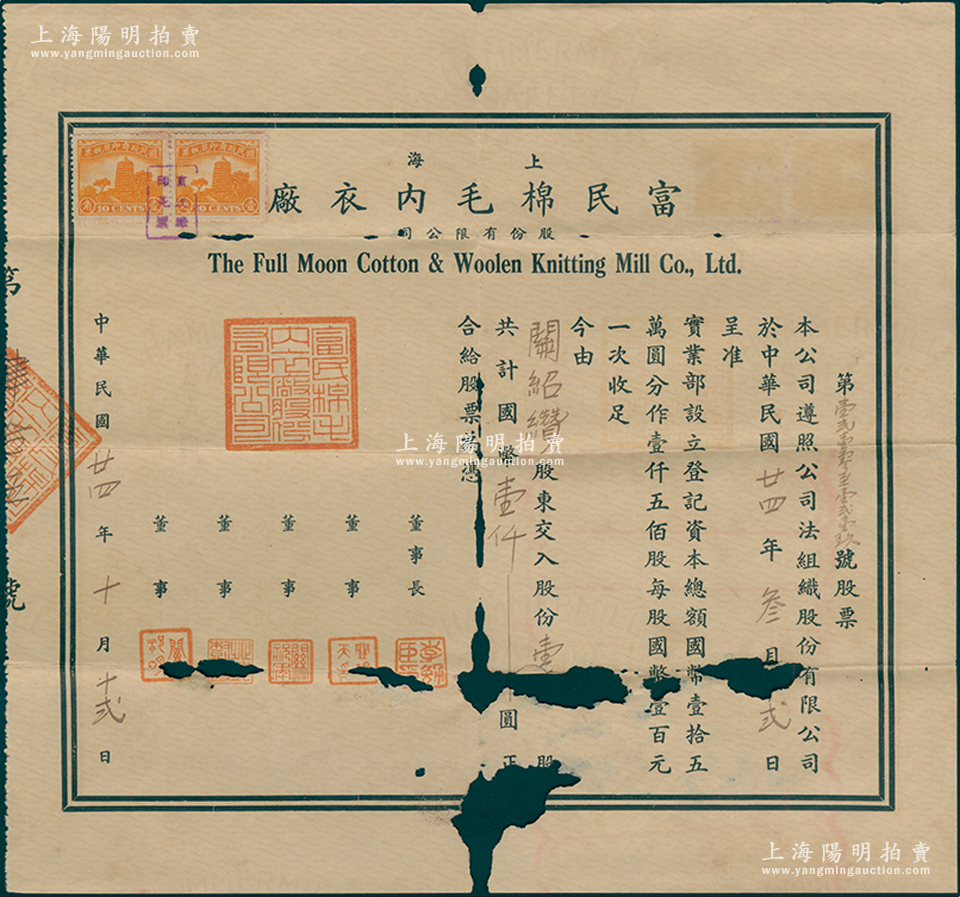 上海陽明拍賣
www.yangmingauction.com
上海
富民棉毛內衣廠
股份有限公司
The Full Moon Cotton & Woolen Knitting Mill Co., Ltd.
10 CENTS
10 CENTS
第壹貳壹零至壹貳壹玖號股票
本公司遵照公司法組織股份有限公司
於中華民國廿四年叁月弍日
呈准
實業部設立登記資本總額國幣壹拾五
萬圓分作壹仟五佰股每股國幣壹百元
一次收足
今由
關紹纘股東交入股份壹 股
共計國幣壹仟 圓正
合給股票為憑
董事長
董事
董事
董事
董事
中華民國廿四年十月十弍日
富民棉毛內衣廠股份有限公司
第
號
上海陽明拍賣
www.yangmingauction.com
上海陽明拍賣
www.yangmingauction.com